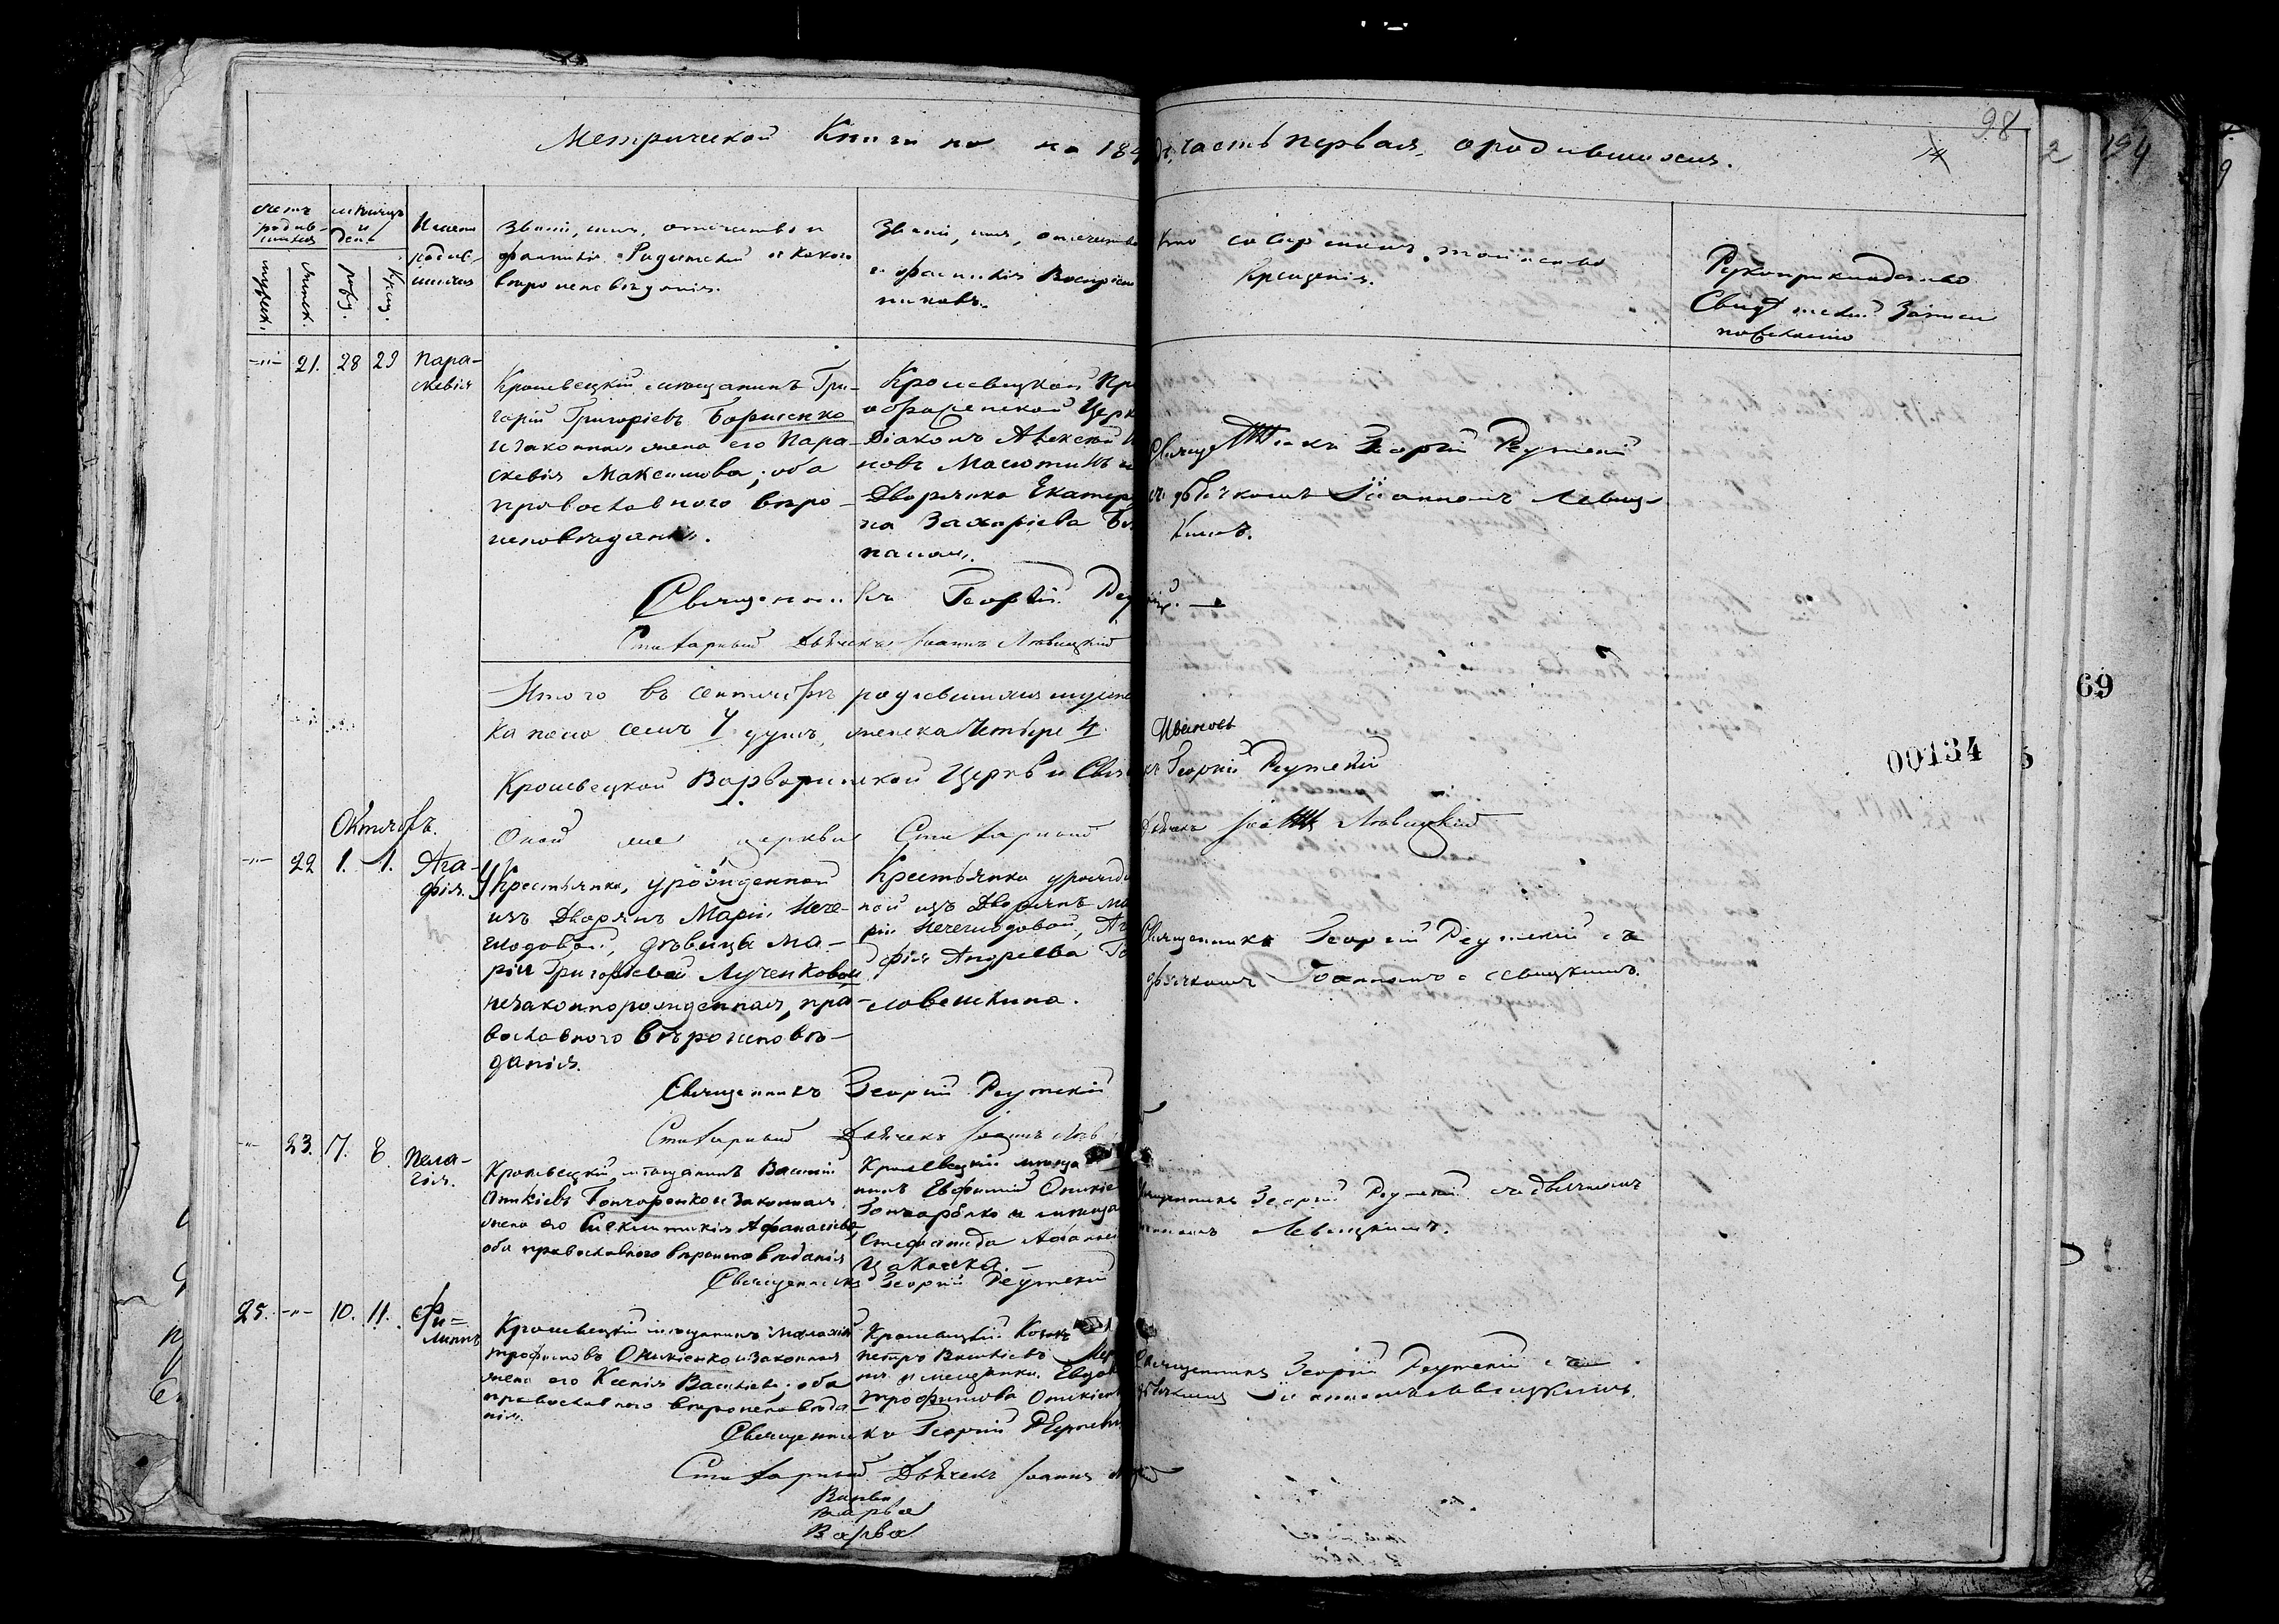 Метрической Книги на на 184 часть первая, о родившихся.
98
14
2
194
9
Счетъ родив-шихся
мѣсяцъ и день
Имена родив-шихся
мужск.
женск.
рожд.
Крещ.
Званіе, имя, отчество и
фамилія Родителей и какого
вѣроисповѣданія.
Званіе, имя, отчество
и фамилія Воспріем
никовъ.
Кто совершилъ таинство
Крещенія.
Рукоприкладство
Свидѣтелей Записи
по желанію
21. 28 29 Пара-
скевія
Кролевецкій мѣщанинъ Гри-
горій Григоріевъ Борисенко
и законная жена его Пара-
скевія Максимова, оба
православного вѣро-
исповѣданія.
Кролевецкой Пре
ображенской Церк
Діаконъ Алексѣй
новъ Масютинъ и
Дворянка Екатери
на Захаріева
Священникъ Георгій Реутскій
съ дьячкомъ Іоанномъ Левиц-
кимъ.
Священникъ Георгій Реутскій.
Стихарный Дьячекъ Іоаннъ Левицкій
Итого въ сентябрѣ родившихся мужес
каполо семъ 7 душъ, женска Четыре 4.
Ивановъ
Кролевецкой Варваринской Церкви Свящ
къ Георгій Реутскій
00134
69
Октябрь.
Оной же церкви Стихарный Дьячекъ Левицкій
22 1. 1. Ага-
фія.
У Крестьянки, урожденной
изъ Дворянъ Маріи Нече-
модовой, дѣвицы Ма-
ріи Григоріевой Лученковой
незаконнорожденная, пра-
вославного вѣроисповѣ-
данія.
Крестьянка урожден
ной изъ Дворянъ Ма
ріи Нечемодовой, Ага
фія Андреева Го
ловешкина.
Священникъ Георгій Реутскій съ
дьячкомъ Іоанномъ Левицкимъ.
Священникъ Георгій Реутскій
Стихарный Дьячекъ Іоаннъ Лев
23. 7. 8. Пела-
гія.
Кролевецкій мѣщанинъ Василій
Оникіевъ Гончаренко и законная
жена его Синклитикія Афанасіева
оба православного вѣроисповѣданія
Кролевецкій мѣща
нинъ Евфимій Оникіе
Гончаренко и мѣща
Стефанида Афанас
Священникъ Георгій Реутскій съ дьячкомъ
Левицкимъ.
Священникъ Георгій Реутскій
25. 10. 11. Фи-
липпъ
Кролевецкій мѣщанинъ Малахій
Трофимовъ Оникіенко и законная
жена его Ксенія Васильева, оба
православного вѣроисповѣда-
нія.
Кролевецкій Козакъ
Петръ Васильевъ
и мещанка Евдок
Трофимова Оникіен
Священникъ Георгій Реутскій съ
дьячкомъ Іоанномъ Левицкимъ.
Священникъ Георгій Реутскій
Стихарный Дьячекъ Іоаннъ
Варва
Варва
Варва